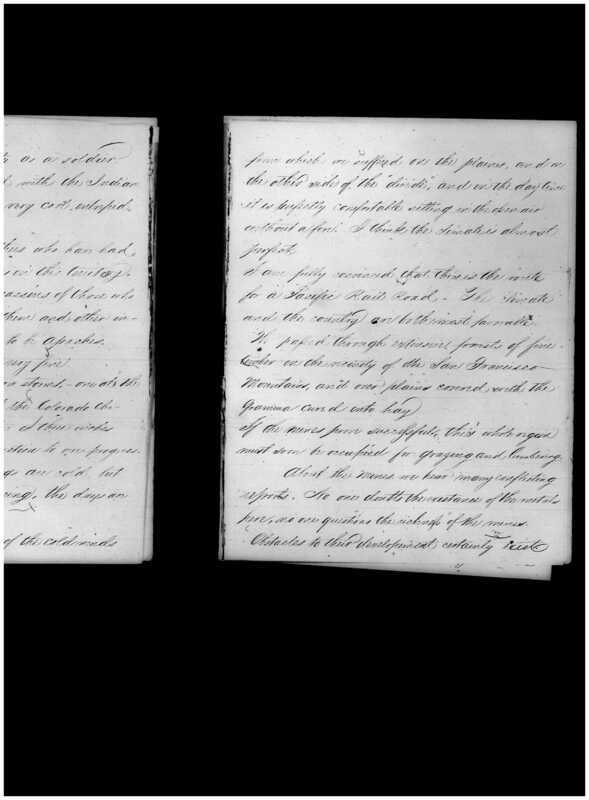 as a soldier
with the Indian
very cool, whipped
who have had
in this Territory
of those who
and other in-
to be Apaches.
very fine
storms, one at the
the Colorado Chi-
three weeks
to our progress
are cold, but
the days are
of the cold winds
from which we suffered on the plains, and on
the other sides of the "divide", and in the day time
it is perfectly comfortable sitting in the open air
without a fire. I think the climate is almost
perfect.
I am fully convinced that this is the route
for a Pacific Rail Road. The climate
and the country are both most favorable.
We passed through extensive forests of pine
timber in the vicinity of the San Francisco
Mountains, and over plains covered with the
Gramma cured into hay
If the mines prove successful, this whole region
must soon be occupied for grazing and lumbering.
About the mines we hear many conflicting
reports. No one doubts the existence of the metals
here, no one questions the richness of the mines.
Obstacles to their development certainly exist